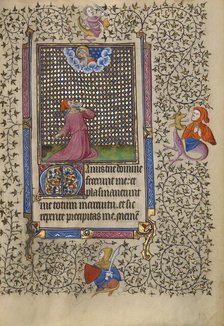 Manus tue domine
fecerunt me: et
plasmauerunt
me totum in circuitu, et sic
repente precipitas me. Meme